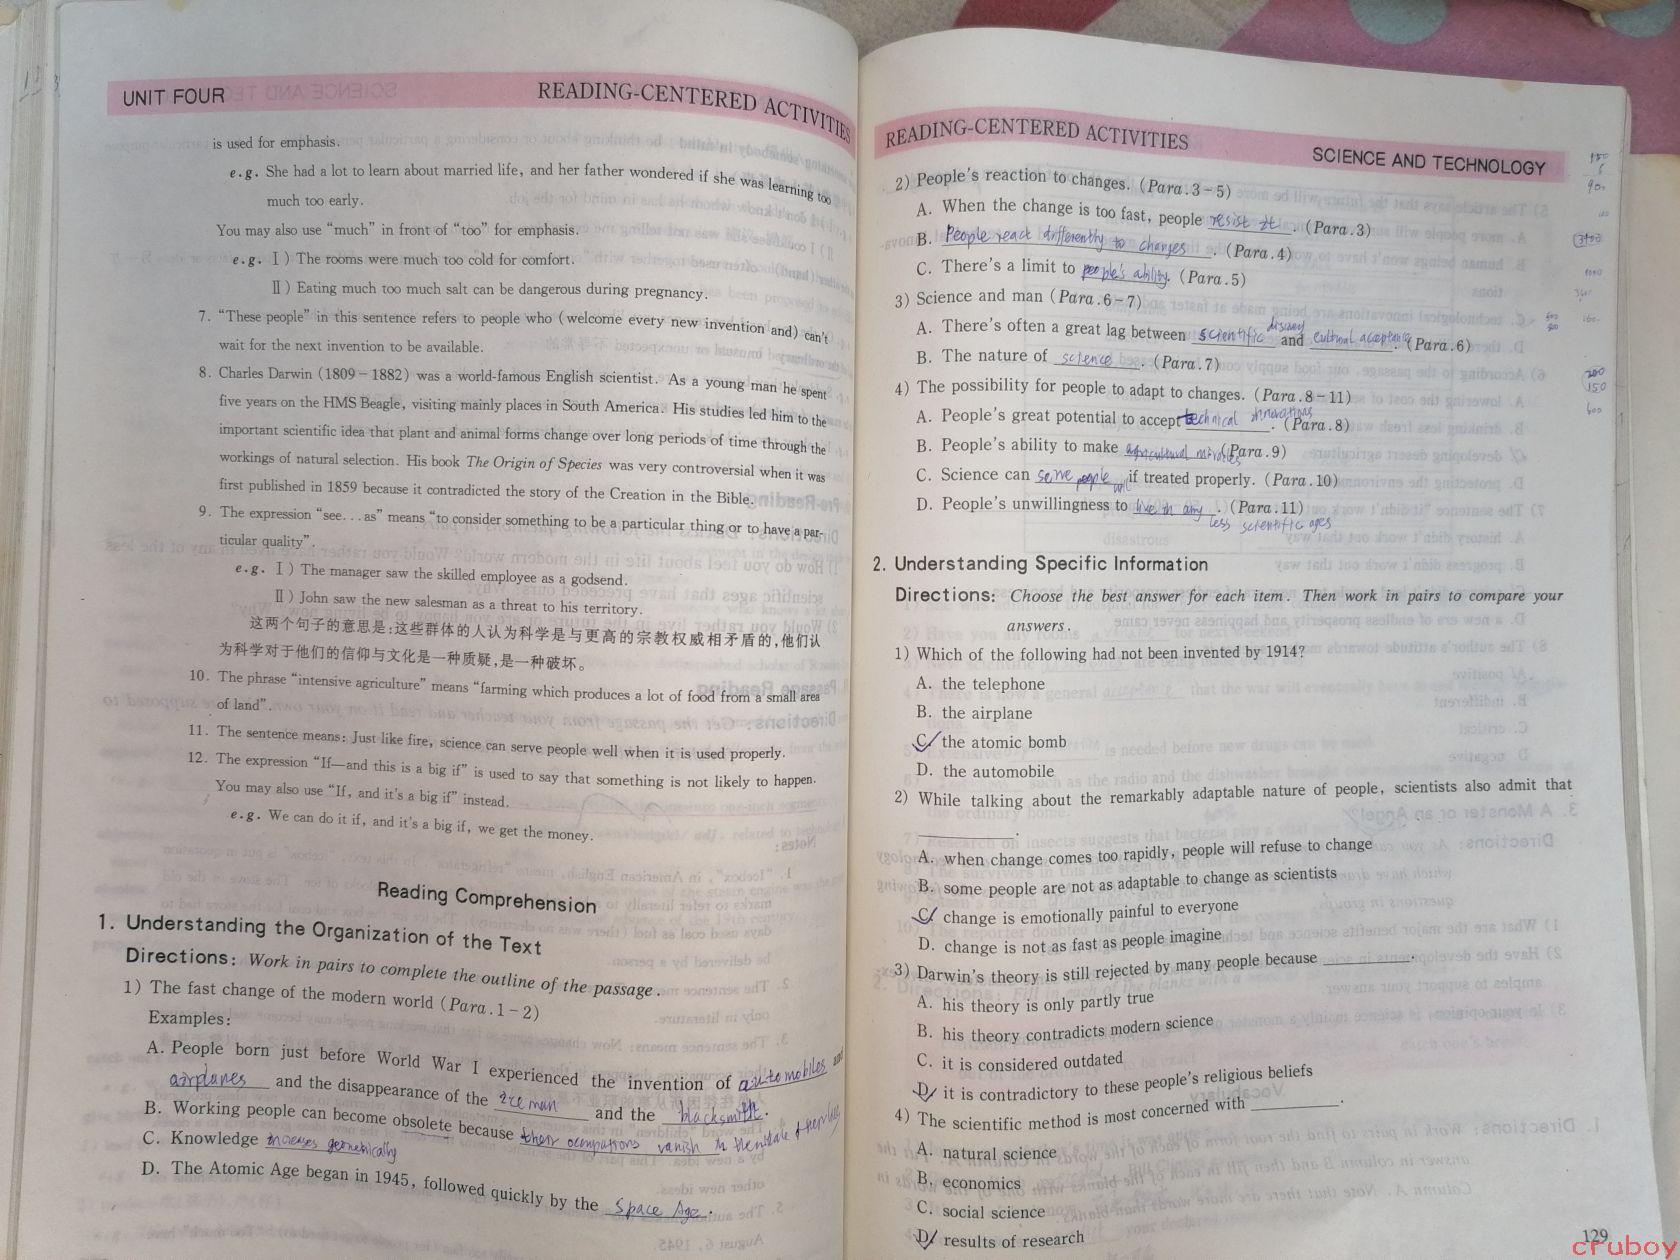 UNIT FOUR
READING-CENTERED ACTIVITIES
is used for emphasis.
e.g. She had a lot to learn about married life, and her father wondered if she was learning too
much too early.
You may also use “much” in front of “too” for emphasis.
e.g. Ⅰ) The rooms were much too cold for comfort.
Ⅱ) Eating much too much salt can be dangerous during pregnancy.
7. “These people” in this sentence refers to people who (welcome every new invention and) can't
wait for the next invention to be available.
8. Charles Darwin (1809-1882) was a world-famous English scientist. As a young man he spent
five years on the HMS Beagle, visiting mainly places in South America. His studies led him to the
important scientific idea that plant and animal forms change over long periods of time through the
workings of natural selection. His book The Origin of Species was very controversial when it was
first published in 1859 because it contradicted the story of the Creation in the Bible.
9. The expression “see...as” means “to consider something to be a particular thing or to have a par-
ticular quality”.
e.g. Ⅰ) The manager saw the skilled employee as a godsend.
Ⅱ) John saw the new salesman as a threat to his territory.
这两个句子的意思是:这些群体的人认为科学是与更高的宗教权威相矛盾的,他们认
为科学对于他们的信仰与文化是一种质疑,是一种破坏。
10. The phrase “intensive agriculture” means “farming which produces a lot of food from a small area
of land”.
11. The sentence means: Just like fire, science can serve people well when it is used properly.
12. The expression “If—and this is a big if” is used to say that something is not likely to happen.
You may also use “If, and it's a big if” instead.
e.g. We can do it if, and it's a big if, we get the money.
Reading Comprehension
1. Understanding the Organization of the Text
Directions: Work in pairs to complete the outline of the passage.
1) The fast change of the modern world (Para.1-2)
Examples:
A. People born just before World War I experienced the invention of automobiles and
airplanes and the disappearance of the iceman and the blacksmith.
B. Working people can become obsolete because their occupations vanish in the middle of their lives
C. Knowledge increases geometrically
D. The Atomic Age began in 1945, followed quickly by the Space Age.
READING-CENTERED ACTIVITIES
SCIENCE AND TECHNOLOGY
2) People's reaction to changes. (Para.3-5)
A. When the change is too fast, people resist it. (Para.3)
B. People react differently to changes. (Para.4)
C. There's a limit to people's ability. (Para.5)
3) Science and man (Para.6-7)
A. There's often a great lag between scientific discovery and cultural acceptance. (Para.6)
B. The nature of science. (Para.7)
4) The possibility for people to adapt to changes. (Para.8-11)
A. People's great potential to accept technical innovations. (Para.8)
B. People's ability to make agricultural miracles (Para.9)
C. Science can serve people well if treated properly. (Para.10)
D. People's unwillingness to live in any less scientific ages. (Para.11)
2. Understanding Specific Information
Directions: Choose the best answer for each item. Then work in pairs to compare your
answers.
1) Which of the following had not been invented by 1914?
A. the telephone
B. the airplane
C. the atomic bomb
D. the automobile
2) While talking about the remarkably adaptable nature of people, scientists also admit that
________.
A. when change comes too rapidly, people will refuse to change
B. some people are not as adaptable to change as scientists
C. change is emotionally painful to everyone
D. change is not as fast as people imagine
3) Darwin's theory is still rejected by many people because ________.
A. his theory is only partly true
B. his theory contradicts modern science
C. it is considered outdated
D. it is contradictory to these people's religious beliefs
4) The scientific method is most concerned with ________.
A. natural science
B. economics
C. social science
D. results of research
129
cruboy